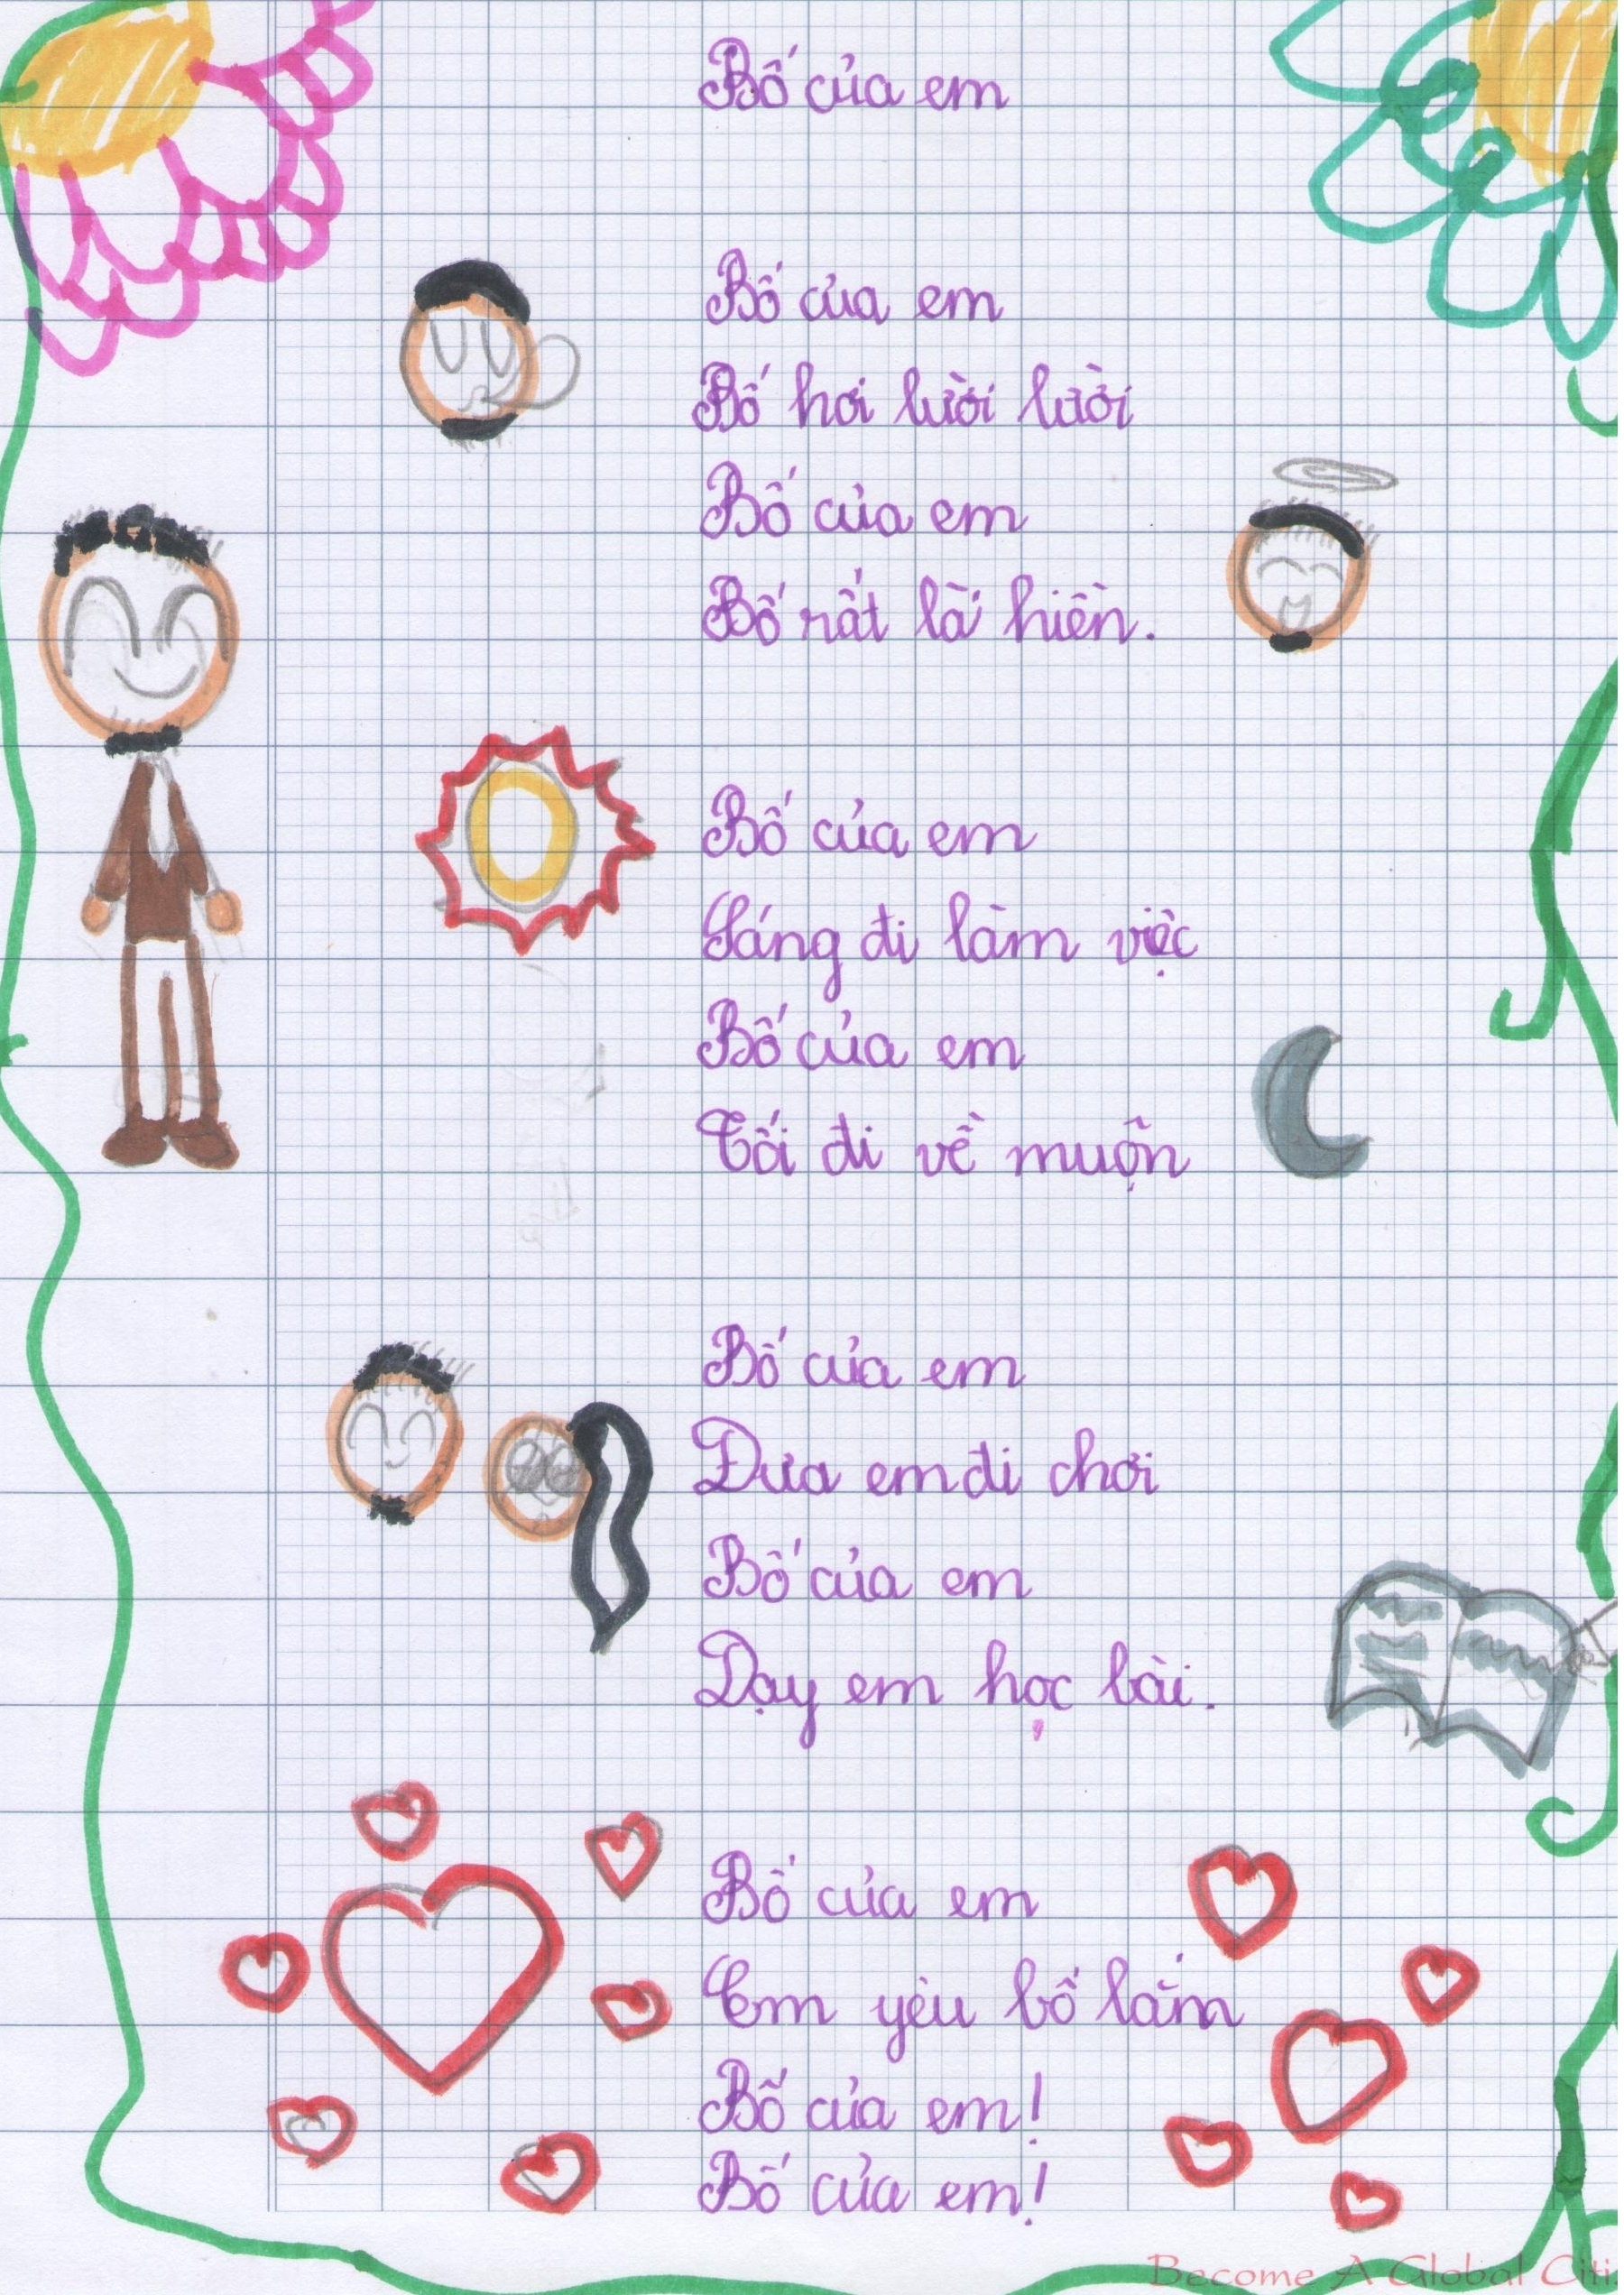 Bố của em
Bố của em
Bố hơi lười lười
Bố của em
Bố rất là hiền.
Bố của em
Sáng đi làm việc
Bố của em
Tối đi về muộn
Bố của em
Đưa em đi chơi
Bố của em
Dạy em học bài.
Bố của em
Em yêu bố lắm
Bố của em!
Bố của em!
Become A Global Citi